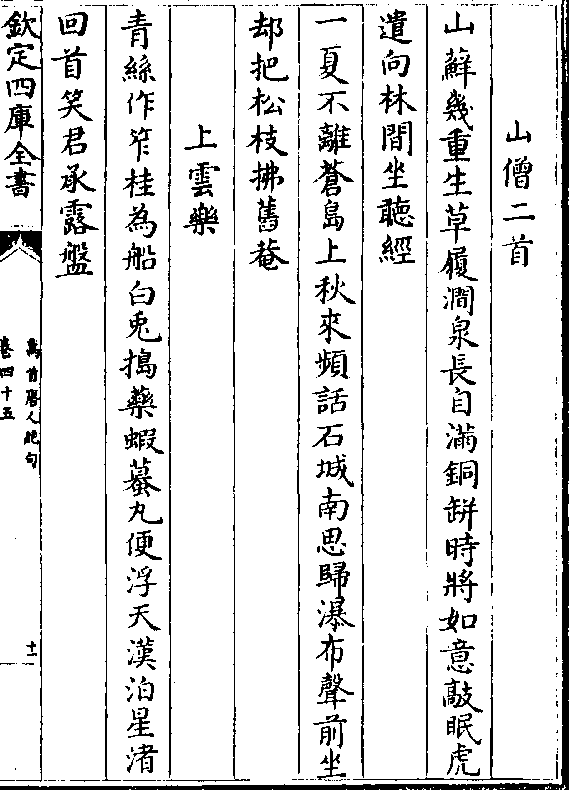 山僧二首
山蘇幾重生草履澗泉長自滿銅缾時將如意敲眠虎
遣向林間坐聽經
一夏不離蒼島上秋來頻話石城南思歸瀑布聲前坐
却把松枝拂舊菴
上雲樂
青絲作笮桂為船白兎搗藥蝦蟇丸便浮天漢泊星渚
回首笑君承露盤
欽定四庫全書
萬首唐人絶句
卷四十五
十一